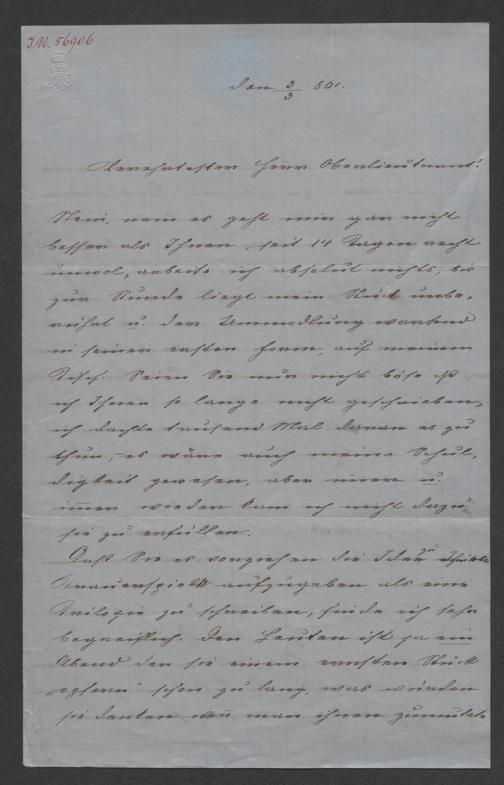 J.N. 56906
den 3/3 861.
Verehrtester Herr Oberlieutnant!
Nein, nein es geht mir gar nicht
besser als Ihnen, seit 14 Tagen recht
unwol, arbeite ich absolut nichts, bis
zur Stunde liegt mein Stück unbe-
rührt u. der Umwodlung wartend
in seiner ersten Form, auf meinem
Tisch. Seien Sie mir nicht böse daß
ich Ihnen so lange nicht geschrieben,
ich dachte tausend Mal daran es zu
thun, – es wäre auch meine Schul-
digkeit gewesen, aber immer u.
immer wieder kam ich nicht dazu
sie zu erfüllen.
Daß Sie es vorziehen die Idee
Trauerspiels aufzugeben als eine
Trilogie zu schreiben, finde ich sehr
begreiflich. Den Leuten ist ja ein
Abend den sie einem ernsten Stück
„opfern“ schon zu lang, was würden
sie denken wenn man ihnen zumutete